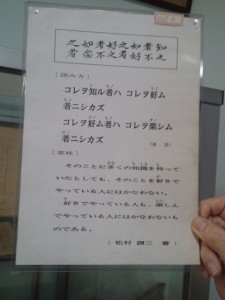 知之
者不
如好
之者
好之
者不
如樂
之者
〔読み方〕
コレヲ知ル者ハ コレヲ好ム
者ニシカズ
コレヲ好ム者ハ コレヲ楽シム
者ニシカズ
〔意味〕
そのことに多くの知識を持って
いたとしても、そのことを好きで
やっている人にはかなわない。
好きでやっている人も、楽しん
でやっている人にはかなわないも
のである。
（松村 三 書）